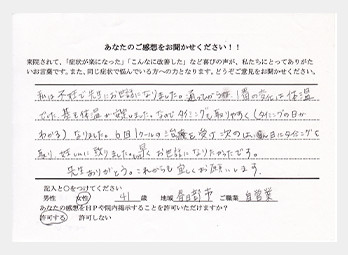 あなたのご感想をお聞かせください！！
来院されて、「症状が楽になった」「こんなに改善した」など喜びの声が、私たちにとってありがた
いお言葉です。また、同じ症状で悩んでいる方への力となります。どうぞご意見をお聞かせください。
私は不妊で先生にお世話になりました。通いながら一番の変化は体温
でした。基礎体温が安定しました。なのでタイミングも取りやすく(タイミングの日が
わかる)なりました。6回1クールのご治療を受け、次の月に
取り、妊娠に致りました。早くお世話になりたかったです。
先生ありがとう。これからも宜しくお願いします。
記入と○をつけてください
男性 女性 41 歳 地域 春日部市 ご職業 自営業
あなたの感想をHPや院内掲示することを許可いただけますか？
許可する 許可しない